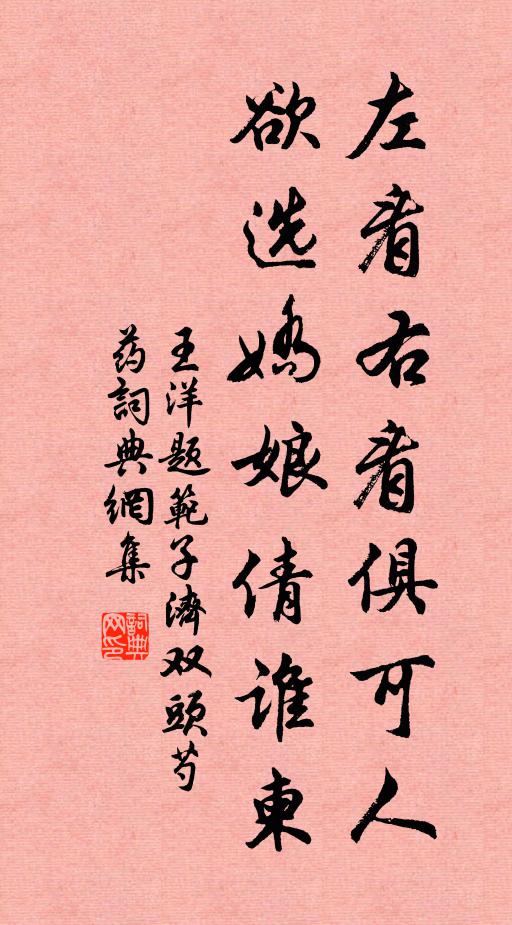 左看右看俱可人
欲选嬌娘倩谁東
王洋题範子濟双頭芍
药詞典網集
詞典网印